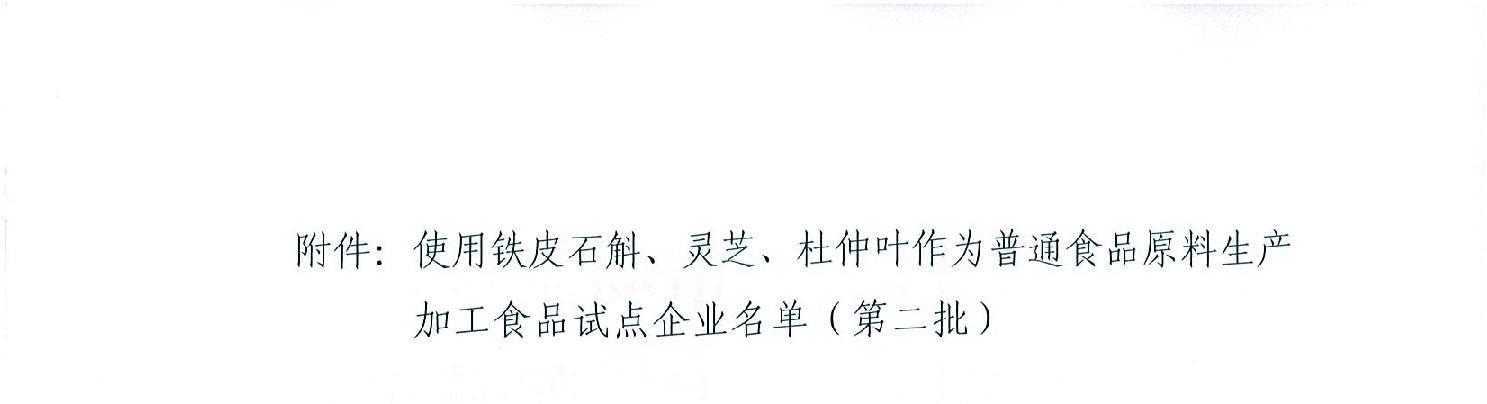 附件：使用铁皮石斛、灵芝、杜仲叶作为普通食品原料生产
加工食品试点企业名单（第二批）